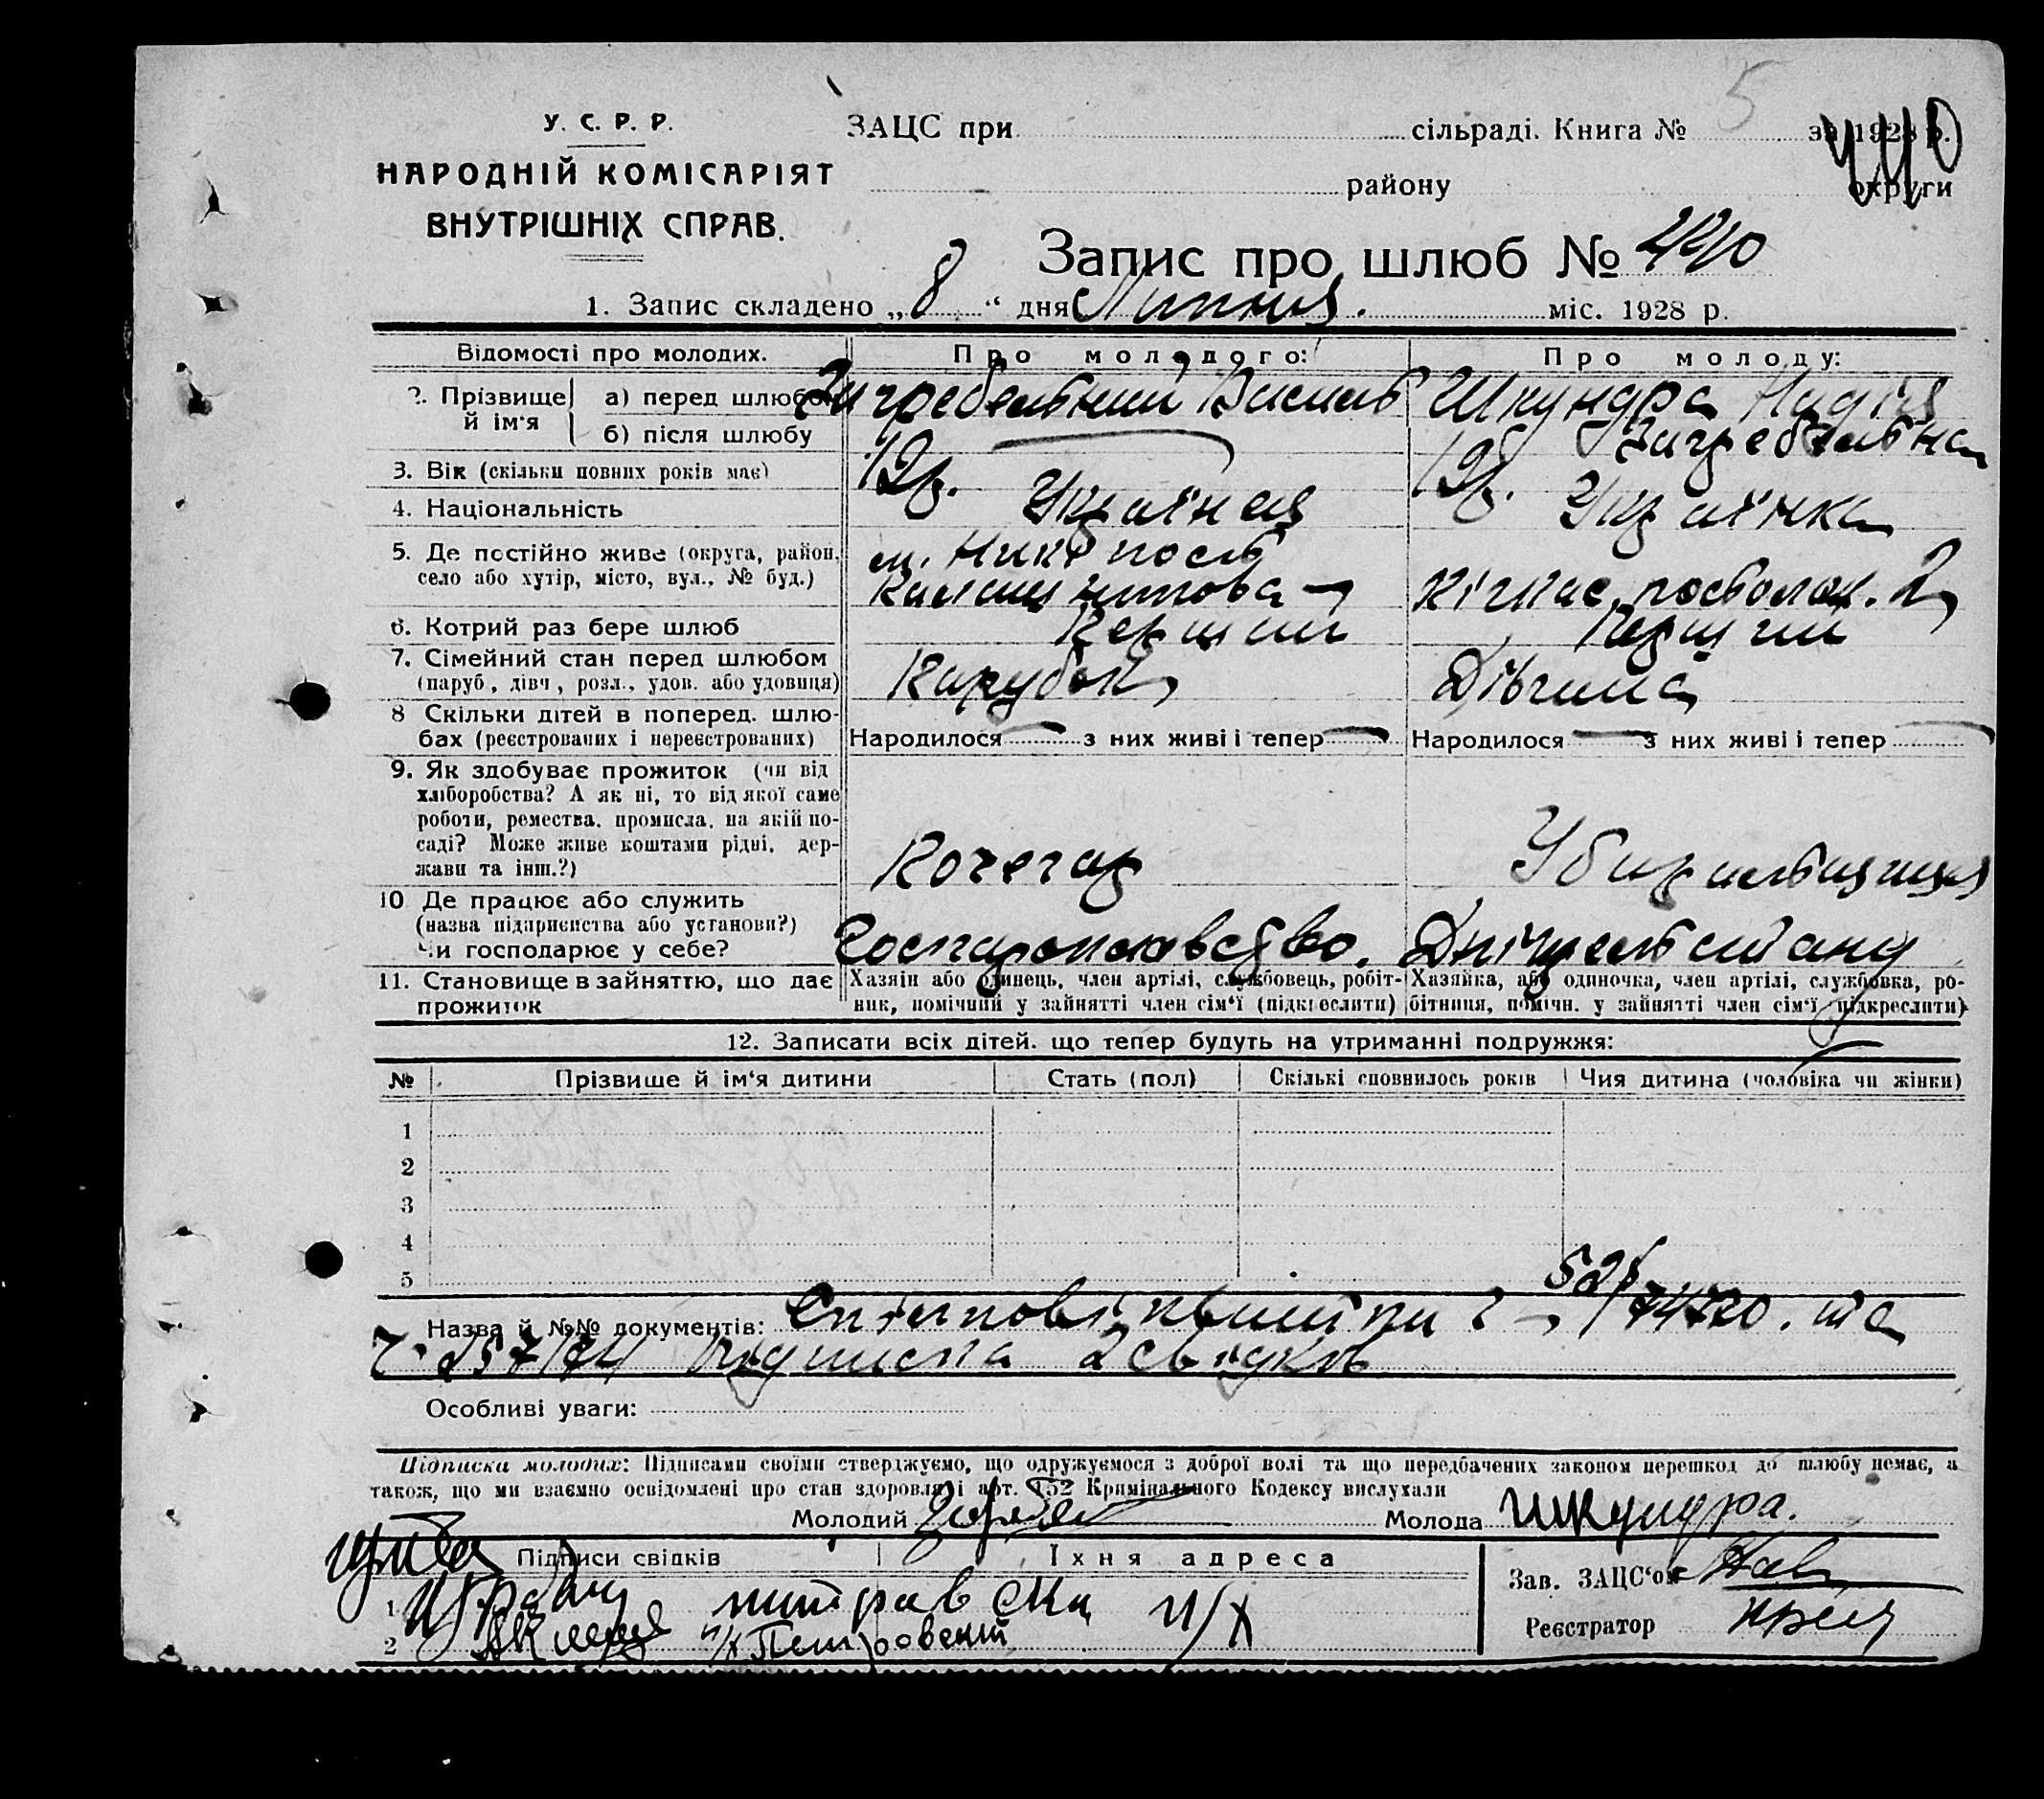 5
У. С. Р. Р.
НАРОДНІЙ КОМІСАРІЯТ
ВНУТРІШНІХ СПРАВ.
ЗАЦС при сільраді. Книга № за 1928 р.
440
району округи
Запис про шлюб № 440
1. Запис складено „ 8 “ дня Липня. міс. 1928 р.
Відомості про молодих. Про молодого: Про молоду:
2. Прізвище й ім‘я а) перед шлюбом Загребельний Василь Шкундра Надія
б) після шлюбу Загребельна
3. Вік (скільки повних років має) 19 р. 19 р.
4. Національність Українец Українка
5. Де постійно живе (округа, район, село або хутір, місто, вул., № буд.)
м. Нікополь
2
6. Котрий раз бере шлюб Перший Перший
7. Сімейний стан перед шлюбом Парубок Дівчина
(паруб, дівч, розл., удов. або удовиця)
8 Скільки дітей в поперед. шлю-
бах (реєстрованих і нереєстрованих) Народилося з них живі і тепер Народилося з них живі і тепер
9. Як здобуває прожиток (чи від
хліборобства? А як ні, то від якої саме
роботи, ремества, промисла, на якій по-
саді? Може живе коштами рідні, дер-
жави та інш.?) Кочегар Убиральщиця
10 Де працює або служить
(назва підприємства або установи?)
Чи господарює у себе? Госпароплавство.
11. Становище в зайняттю, що дає прожиток
Хазяін або одинець, член артілі, службовець, робіт-
ник, помічний у зайнятті член сім‘ї (підкреслити)
Хазяйка, або одиночка, член артілі, службовка, ро-
бітниця, помічн. у зайнятті член сім‘ї (підкреслити)
12. Записати всіх дітей. що тепер будуть на утриманні подружжя:
№ Прізвище й ім‘я дитини Стать (пол) Скількі сповнилось років Чия дитина (чоловіка чи жінки)
1
2
3
4
5
Назва й №№ документів: 74720. та
підписка 2 свідків
Особливі уваги:
Підписка молодих: Підписами своїми стверджуємо, що одружуємося з доброї волі та що передбачених законом перешкод до шлюбу немає, а
також, що ми взаємно освідомлені про стан здоровля і арт. 152 Кримінального Кодексу вислухали
Молодий Молода Шкундра.
Підписи свідків Їхня адреса
Зав. ЗАЦС‘ом
1
2
Реєстратор